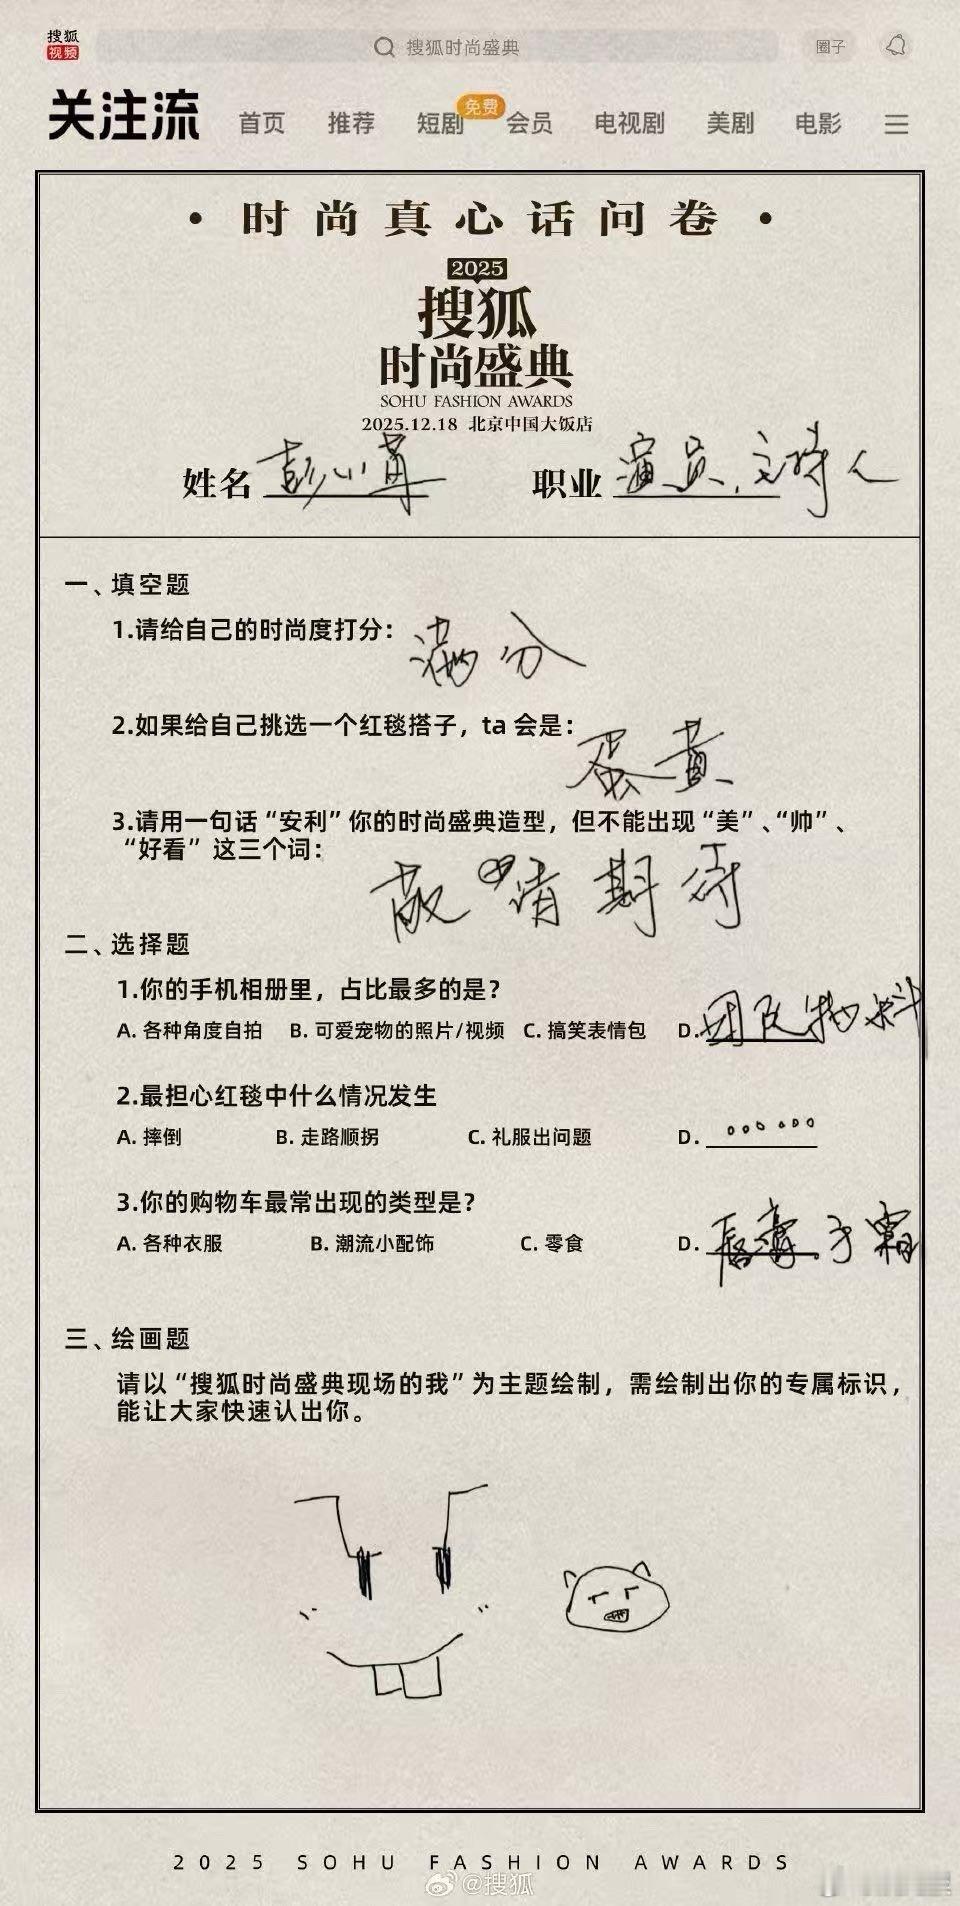 搜狐
视频
搜狐时尚盛典
圈子
关注流 首页 推荐 短剧 免费 会员 电视剧 美剧 电影
• 时尚真心话问卷 •
2025
搜狐
时尚盛典
SOHU FASHION AWARDS
2025.12.18 北京中国大饭店
姓名 彭小苒 职业 演员、主持人
一、填空题
1.请给自己的时尚度打分：满分
2.如果给自己挑选一个红毯搭子，ta 会是：蛋黄
3.请用一句话“安利”你的时尚盛典造型，但不能出现“美”、“帅”、
“好看” 这三个词：
敬请期待
二、选择题
1.你的手机相册里，占比最多的是？
A. 各种角度自拍 B. 可爱宠物的照片/视频 C. 搞笑表情包 D. 团队物料
2.最担心红毯中什么情况发生
A. 摔倒 B. 走路顺拐 C. 礼服出问题 D. 。。。。。。
3.你的购物车最常出现的类型是？
A. 各种衣服 B. 潮流小配饰 C. 零食 D. 唇膏、手霜
三、绘画题
请以“搜狐时尚盛典现场的我”为主题绘制，需绘制出你的专属标识，
能让大家快速认出你。
2025 SOHU FASHION AWARDS
@搜狐